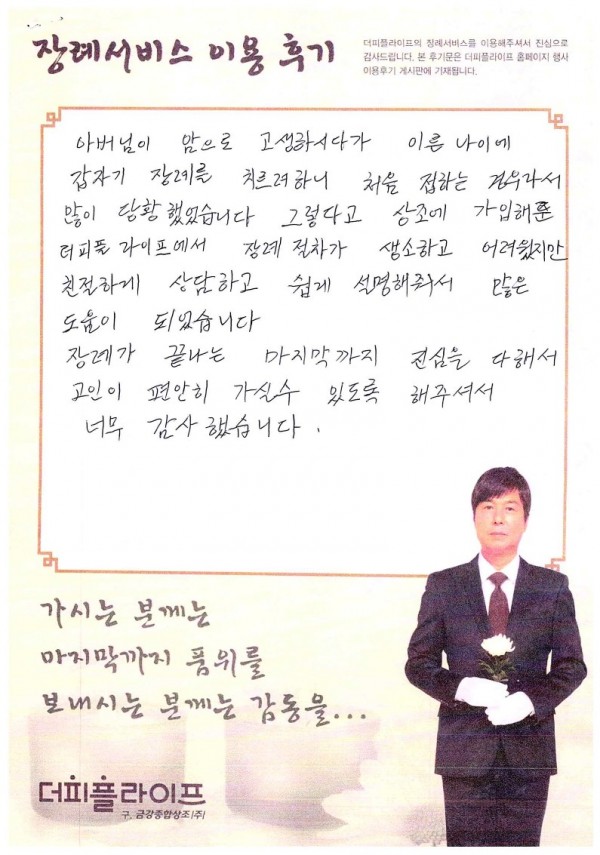 장례서비스 이용 후기
더피플라이프의 장례서비스를 이용해주셔서 진심으로
감사드립니다. 본 후기문은 더피플라이프 홈페이지 행사
이용후기 게시판에 기재됩니다.
아버님이 암으로 고생하시다가 이른 나이에
갑자기 장례를 치르려하니 처음 접하는 경우라서
많이 당황했었습니다 그렇다고 상조에 가입해둔
더피플 라이프에서 장례 절차가 생소하고 어려웠지만
친절하게 상담하고 쉽게 설명해줘서 많은
도움이 되었습니다
장례가 끝나는 마지막까지 진심을 다해서
고인이 편안히 가실수 있도록 해주셔서
너무 감사했습니다.
가시는 분께는
마지막까지 품위를
보내시는 분께는 감동을...
더피플라이프
구. 금강종합상조(주)